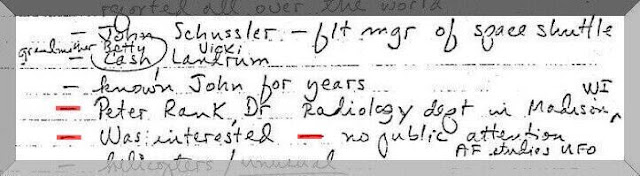 reported all over the world
- John Schussler - flt mgr of space shuttle
grandmother Betty Vicki
- Cash, Landrum
- known John for years
WI
- Peter Rank, Dr Radiology dept in Madison,
- Was interested - no public attention
AF studies UFO
- helicopters / unusual